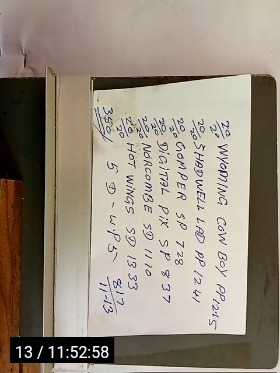 20/20 WYOMING COW BOY PP 1245
20/20 SHADWELL LAD PP 1241
20/20 GOMPER SP 728
20/20 DIGITAL PIX SP 837
20/20 NARCOMBE SD 1110
20/20 HOT WINGS SD 1333
350/ 5 D - WIPS 817
11-13
13 / 11:52:58